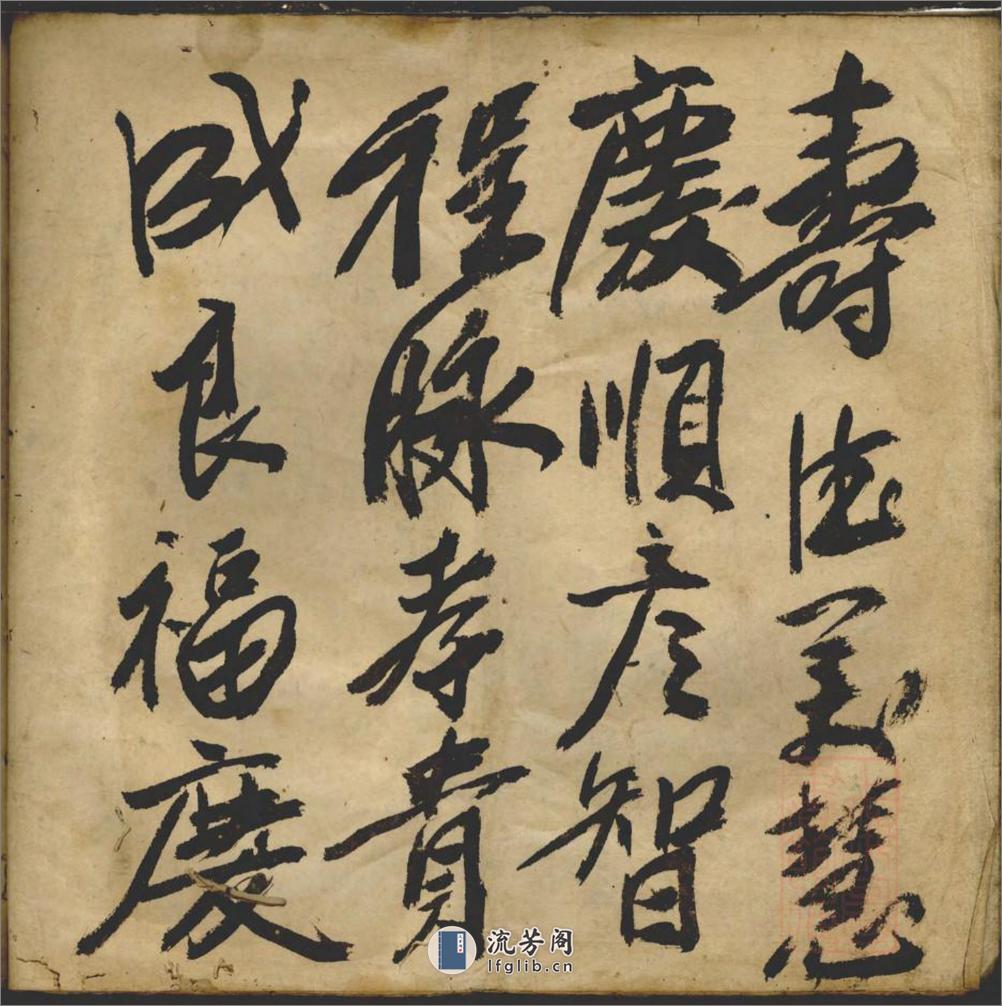 壽法美慧
慶順彦智
程脉孝貴
成良福慶
流芳阁
lfglib.cn